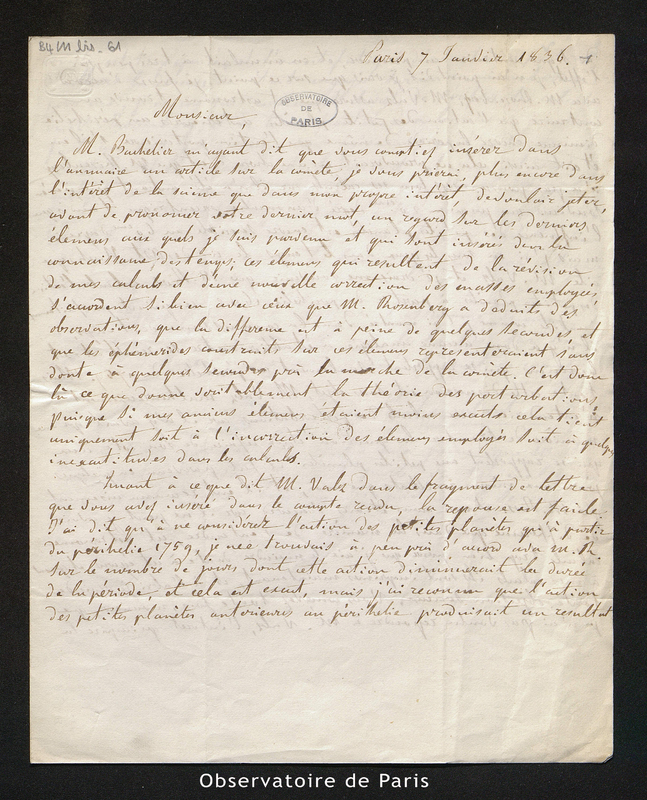 B4 M bis. 61
Paris 7 Janvier 1836.
OBSERVATOIRE
DE
PARIS
Monsieur,
M. Bachelier m'ayant dit que vous comptiez insérer dans
l'annuaire un article sur la comète, je vous prierai, plus encore dans
l'intérêt de la science que dans mon propre intérêt, de vouloir jeter,
avant de prononcer votre dernier mot, un regard sur les derniers
élemens aux quels je suis parvenu et qui sont insérés dans la
connaissance des temps; ces élemens qui resultent de la révision
de mes calculs et d'une nouvelle correction des masses employées
s'accordent si bien avec ceux que M. Rosenberg a déduits des
observations, que la difference est à peine de quelques secondes, et
que les éphémerides construits sur ces élemens representeraient sans
doute à quelques secondes près la marche de la comète. C'est donc
là ce que donne veritablement la théorie des perturbations,
puisque si mes anciens élemens etaient moins exacts cela tient
uniquement soit à l'incorrection des élemens employés soit à quelques
inexactitudes dans les calculs.
Quant à ce que dit M. Valz dans le fragment de lettre
que vous avez inséré dans le compte rendu, la reponse est facile.
J'ai dit qu'à ne considerer l'action des petites planètes qu'à partir
du périhelie 1759, je me trouvais à peu près d'accord avec M.
sur le nombre de jours dont cette action diminuerait la durée
de la période, et cela est exact, mais j'ai reconnu que l'action
des petites planètes anterieures au périhelie produisait un resultat
Observatoire de Paris